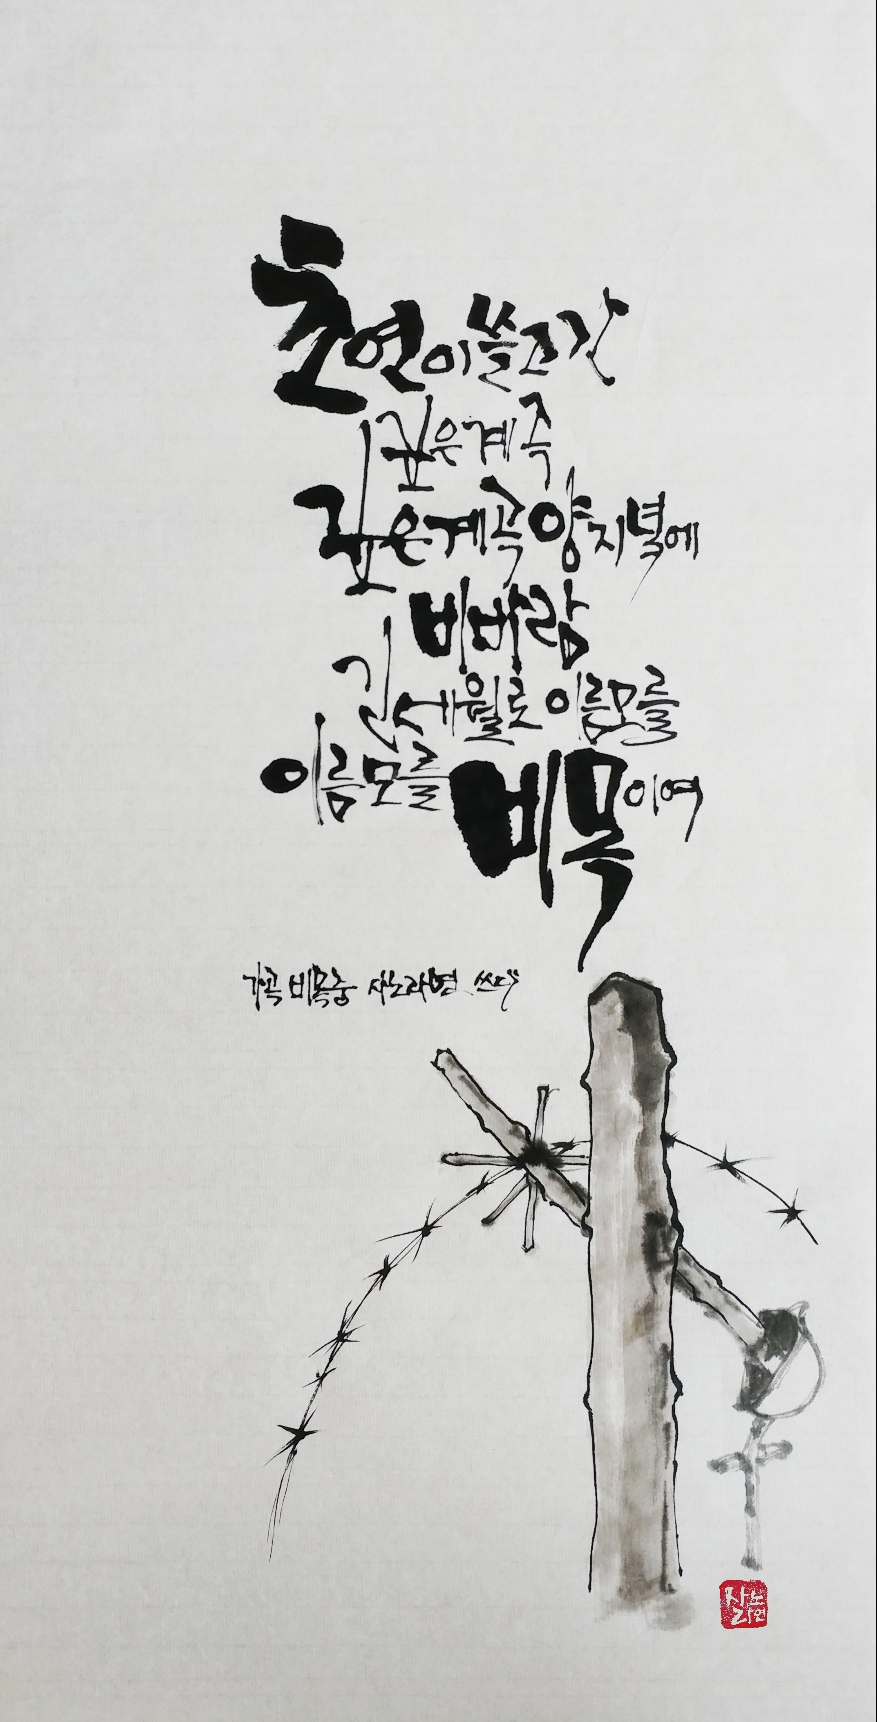 초연이쓸고간
깊은계곡
깊은계곡양지녘에
비바람
긴세월로이름모를
이름모를비목이여
가곡 비목중 사노라면 쓰다
사노라면